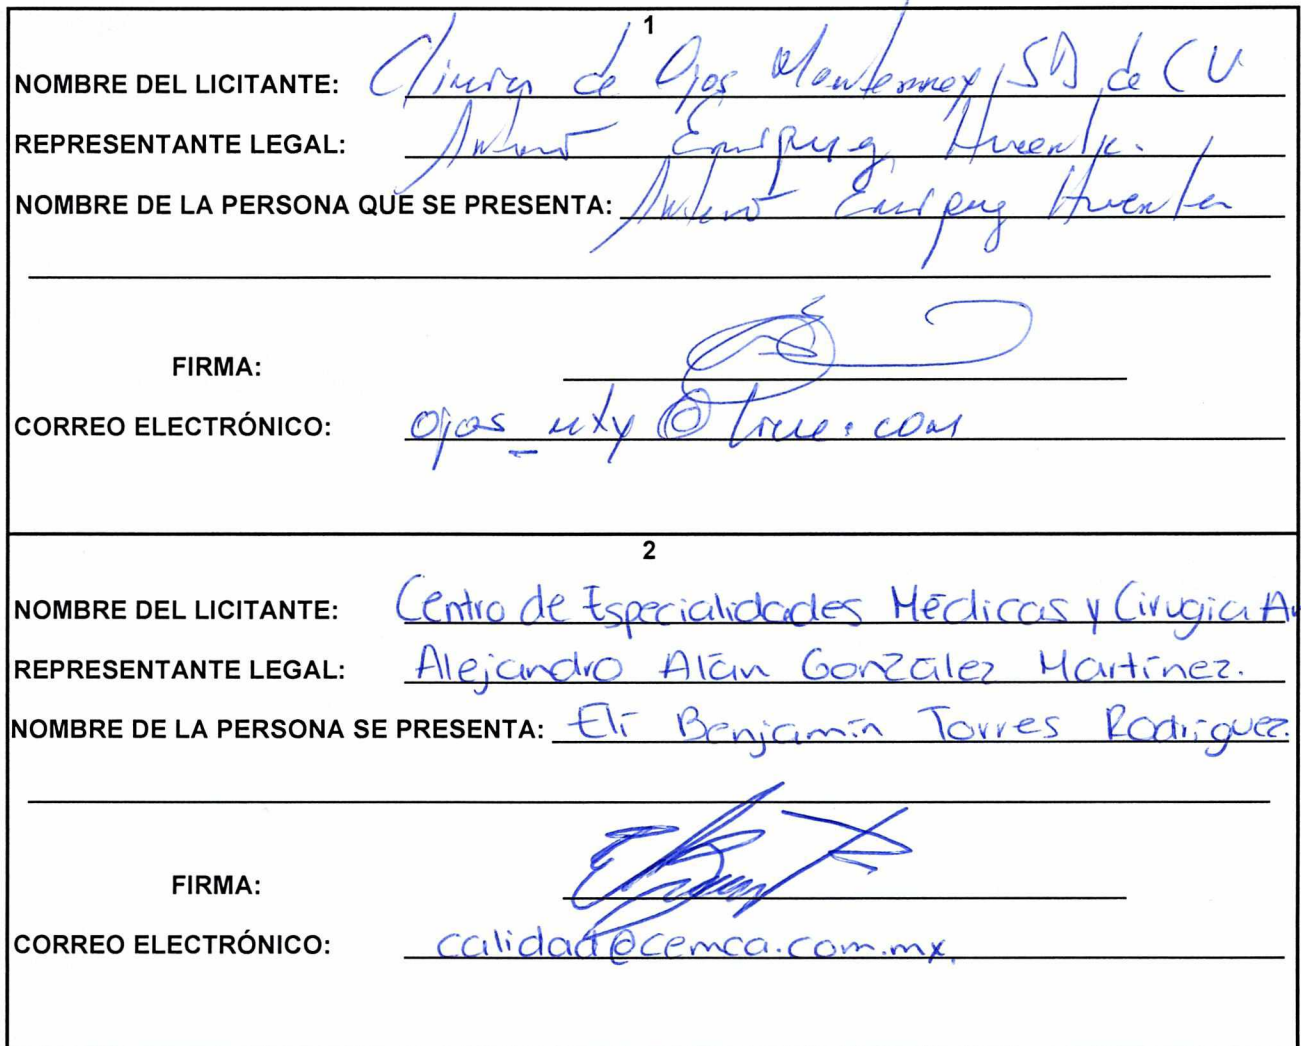 1
NOMBRE DEL LICITANTE: Clinica de Ojos Monterrey, SA de CV
REPRESENTANTE LEGAL:
NOMBRE DE LA PERSONA QUE SE PRESENTA:
FIRMA:
CORREO ELECTRÓNICO: ojos_mty@live.com
2
NOMBRE DEL LICITANTE: Centro de Especialidades Médicas y Cirugia
REPRESENTANTE LEGAL: Alejandro Alán González Martínez.
NOMBRE DE LA PERSONA SE PRESENTA: Elí Benjamín Torres Rodríguez.
FIRMA:
CORREO ELECTRÓNICO: calidad@cemca.com.mx